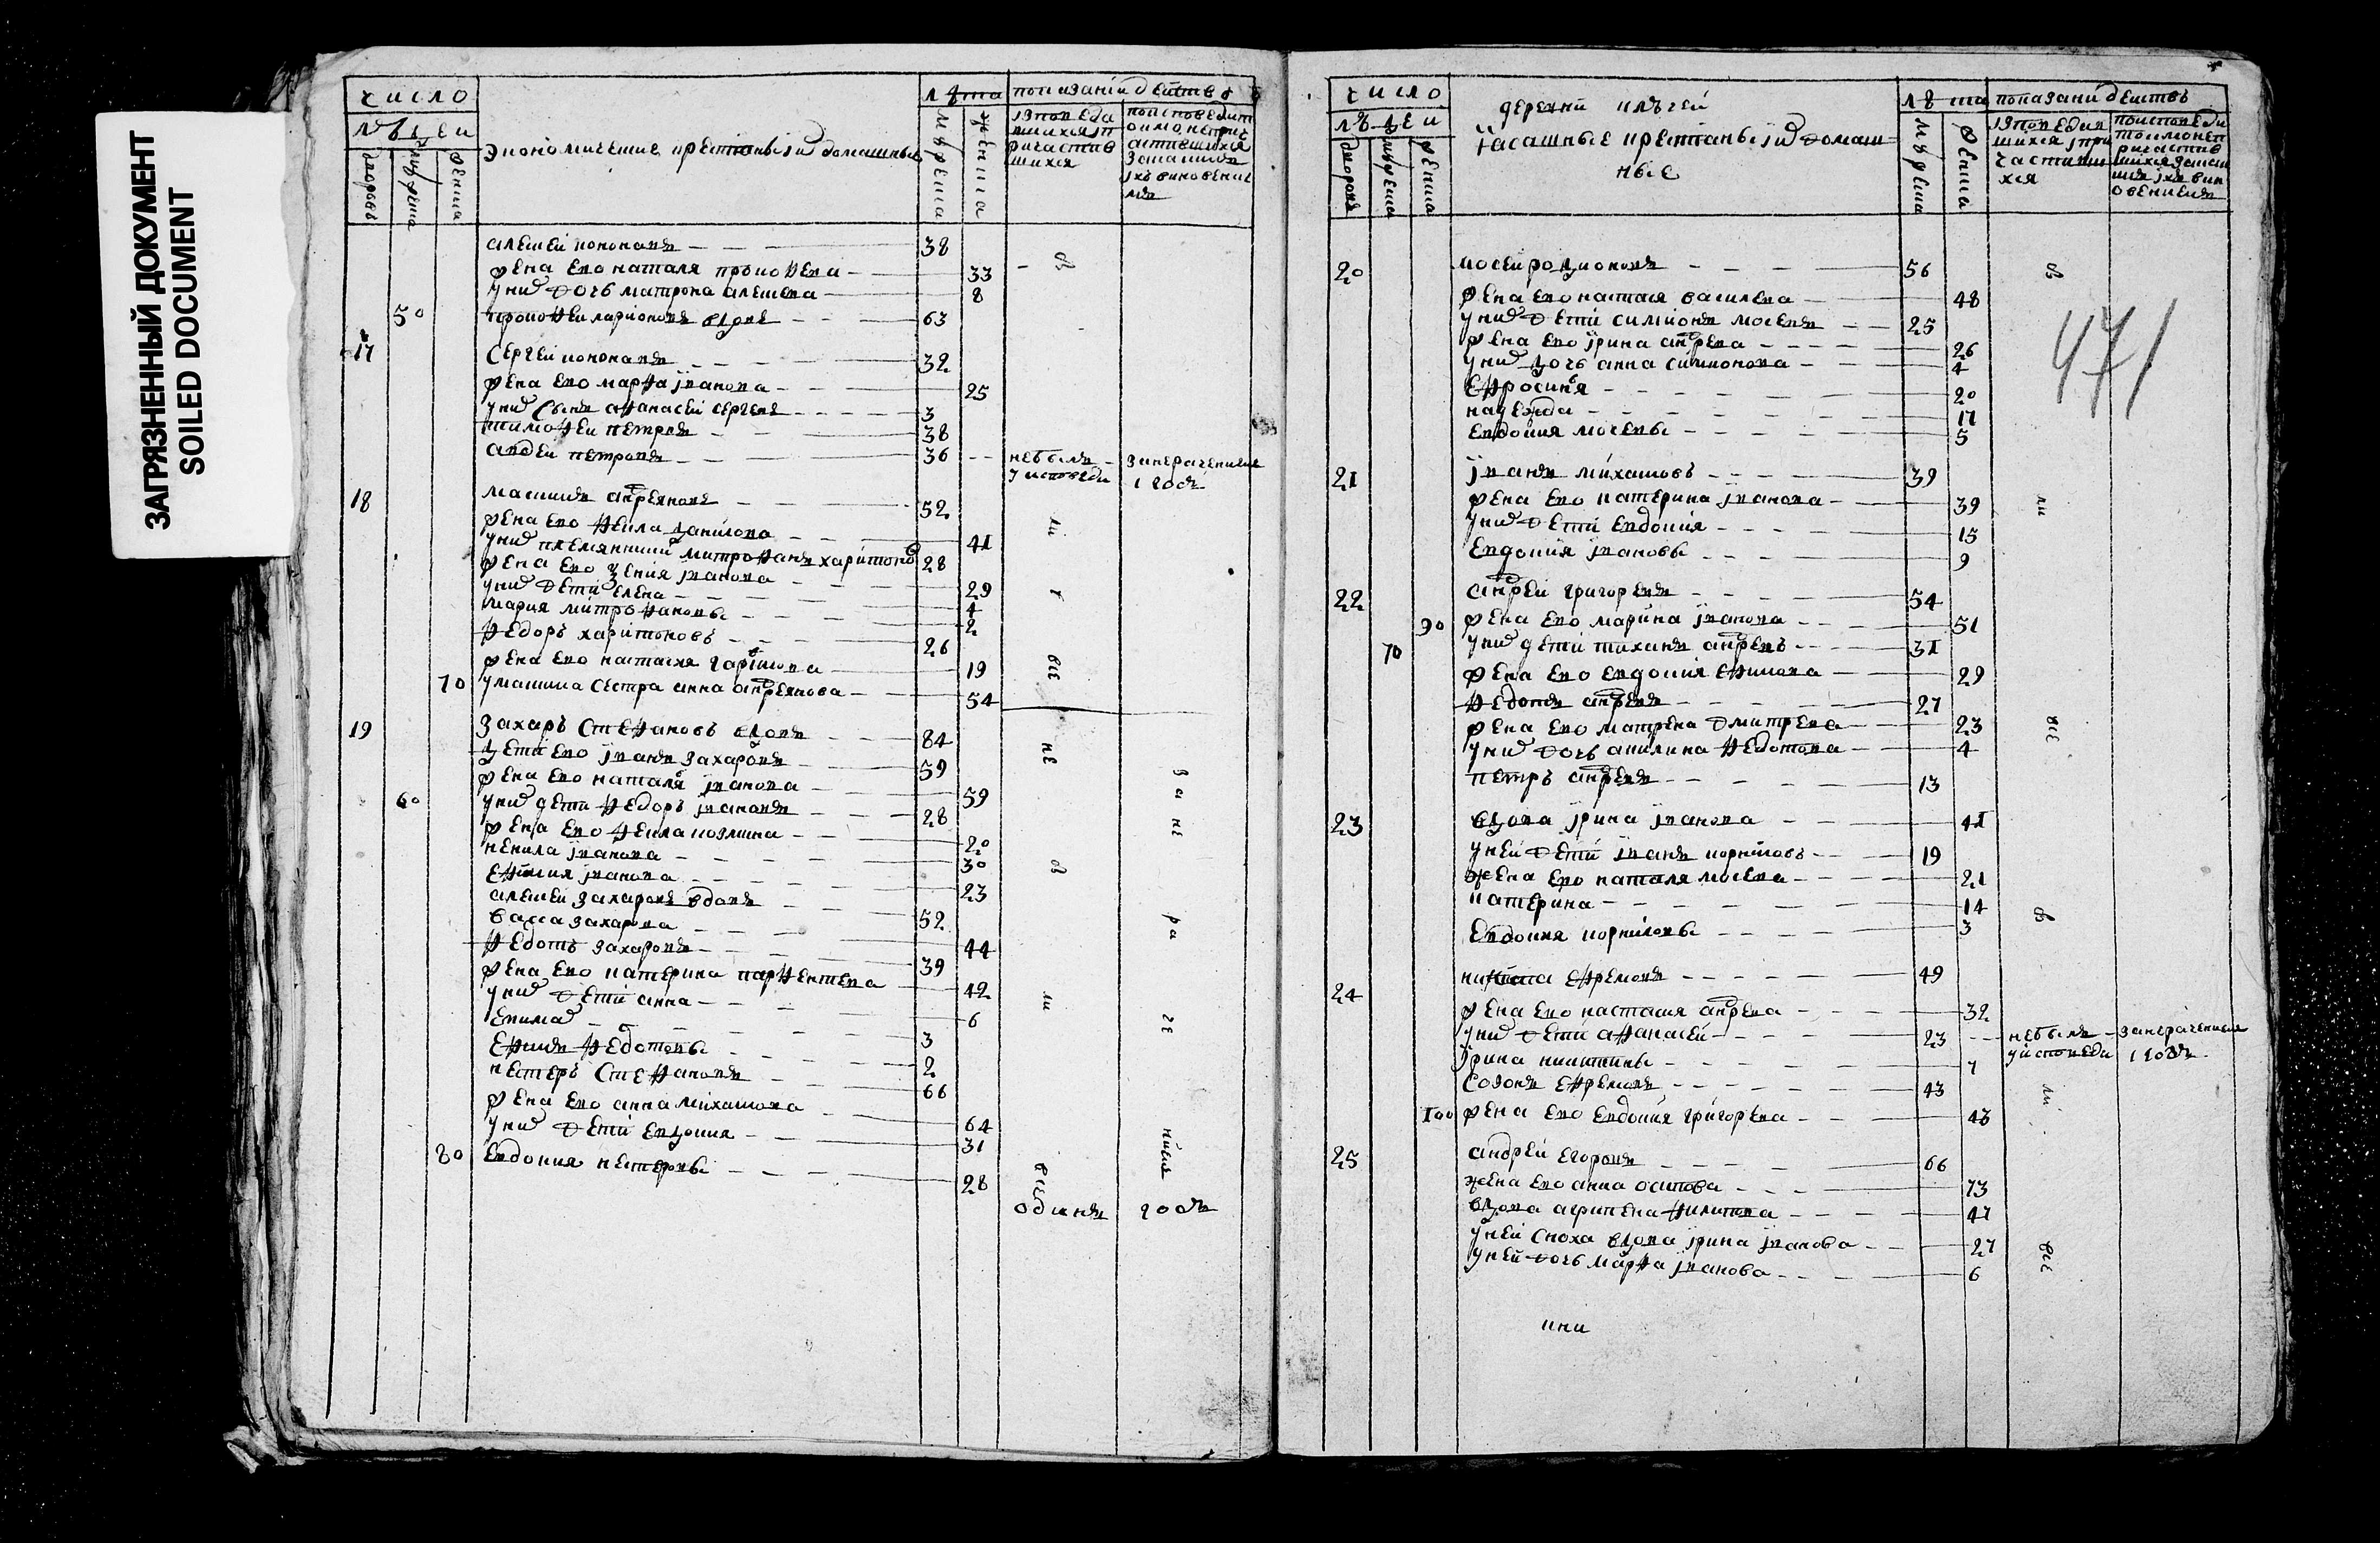 ЗАГРЯЗНЕННЫЙ ДОКУМЕНТ
SOILED DOCUMENT
число
людей
дворовъ
мужеска
женска
экономические крестьяне и их домашные
лѣта
мужеска
женска
показание действ
алексей кононовъ 38
жена ево наталя прокофева 33
у них дочь матрона алексева 8
50 прокофей ларионовъ вдовъ 63
17 сергей кононовъ 32
жена ево марфа иванова 25
у них сынъ афанасей сергевъ 3
тимофей петровъ 38
авдей петровъ 36 не былъ за нерачением
у исповеди 1 годъ
18 максимъ андреяновъ 52
жена ево фекла данилова 41
у них племянник митрофанъ харитонов 28
жена ево ксения иванова 29
у них дети елена 4
мария митрофановы 2
федоръ харитоновъ 26
жена ево настасия гаврилова 19
70 у максима сестра анна андреянова 54
19 захаръ стефановъ вдовъ 84
дети ево иванъ захаровъ 59
жена ево наталя иванова 59
60 у них дети федоръ ивановъ 28
жена ево фекла козмина 20
ненила иванова 30
ефимия иванова 23
алексей захаровъ вдовъ 52
васса захарова 44
федотъ захаровъ 39
жена ево катерина парфентева 42
у них дети анна 6
3
ефимъ федотовы 2
нестеръ стефановъ 66
жена ево анна михаилова 64
у них дети евдокия 31
80 евдокия нестеровы 28
всѣ не за нерачением
одинъ годъ
число
людей
дворовъ
мужеска
женска
деревни ключей
ясашные крестьяне и их домаш
ные
лѣта
мужеска
женска
показание действъ
471
20 мосей родионовъ 56
жена ево настасия василева 48
у них дети симионъ мосевъ 25
жена ево ирина андрева 26
у них дочь анна симионова 4
ефросиня 20
надежда 17
евдокия мосевы 5
21 иванъ михаиловъ 39
жена ево катерина иванова 39
у них дети евдокия 15
евдокия ивановы 9
22 андрей григоревъ 54
90 жена ево марина иванова 51
70 у них дети тихонъ андревъ 31
жена ево евдокия ефимова 29
федотъ андревъ 27
жена ево матрена дмитрева 23
у них дочь акилина федотова 4
петръ андревъ 13
23 вдова ирина иванова 41
у ней дети иванъ корниловъ 19
жена ево наталя мосева 21
катерина 14
евдокия корниловы 3
24 никита ефремовъ 49
жена ево настасия андрева 32
у них дети афанасей 23 не былъ за нерачением
ирина никитины 7 у исповеди 1 годъ
созонъ ефремовъ 43
100 жена ево евдокия григорева 43
25 андрей егоровъ 66
жена ево анна осипова 73
вдова агрипена филипова 47
у ней сноха вдова ирина иванова 27
у ней дочь марфа иванова 6